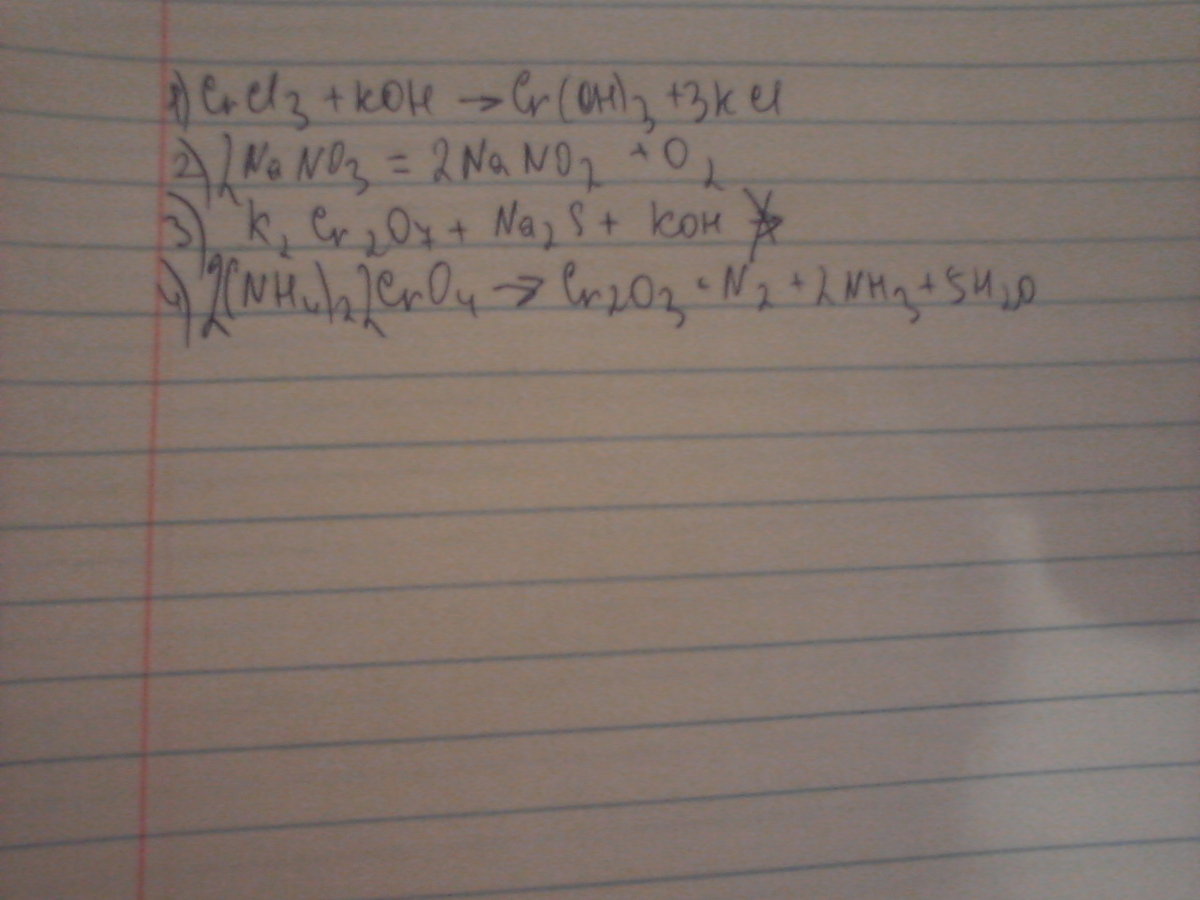 1) CrCl3 + KOH → Cr(OH)3 + 3KCl
2) 2NaNO3 = 2NaNO2 + O2
3) K2Cr2O7 + Na2S + KOH
4) 2(NH4)2]2CrO4 → Cr2O3 + N2 + 2NH3 + 5H2O